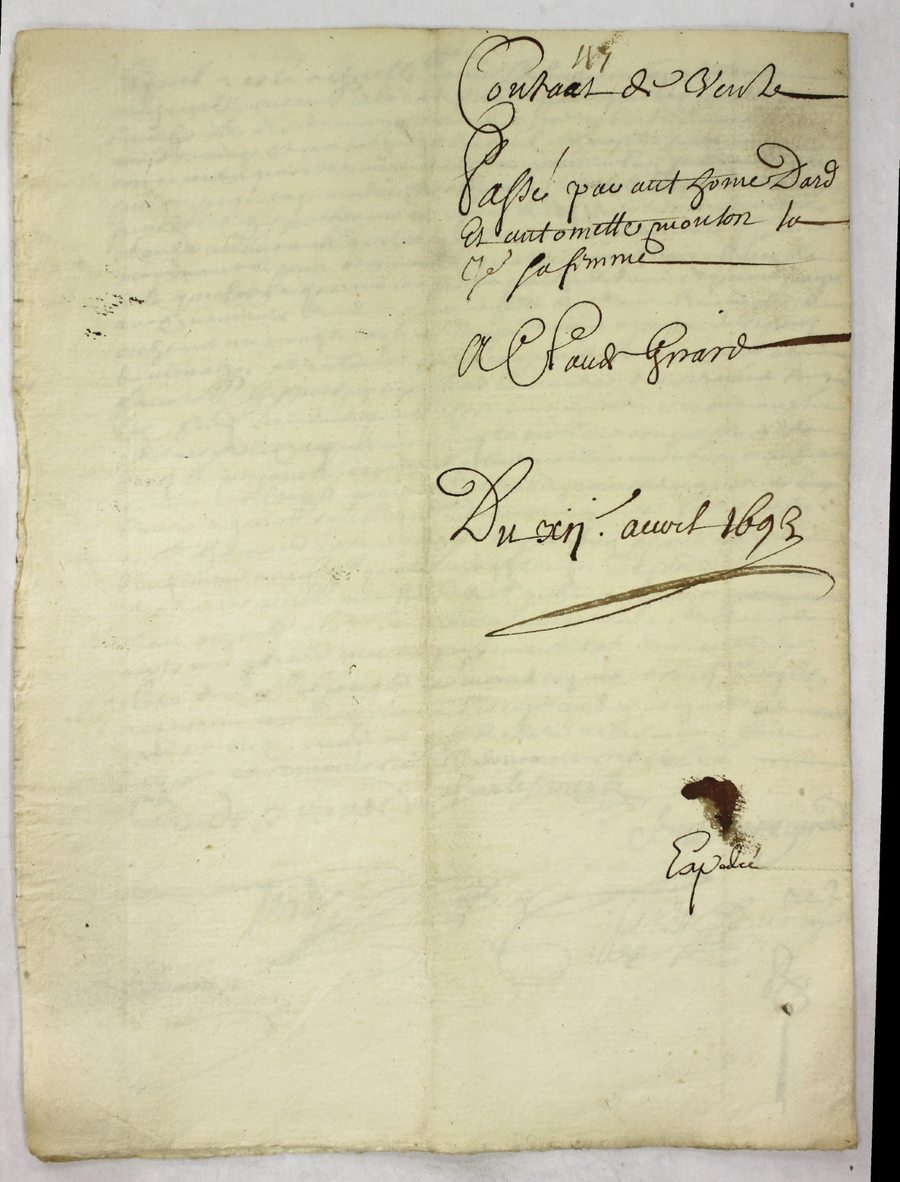 Contract de Vente
Passé par anthoine Dard
Et antoinette mouton
sa femme
A Claude Girard
Du xij.e auvril 1693
Expedié